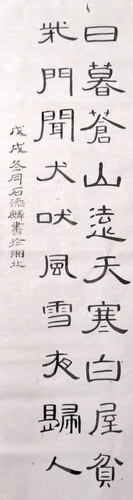 日暮蒼山遠天寒白屋貧
柴門聞犬吠風雪夜歸人
戊戌冬月石添麟書於湘北